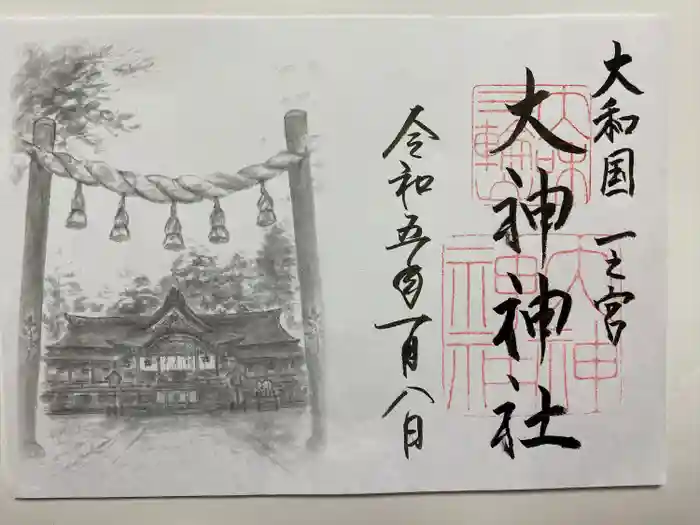 大和国 一之宮
大神神社
令和五年一月八日
三輪
大神神社